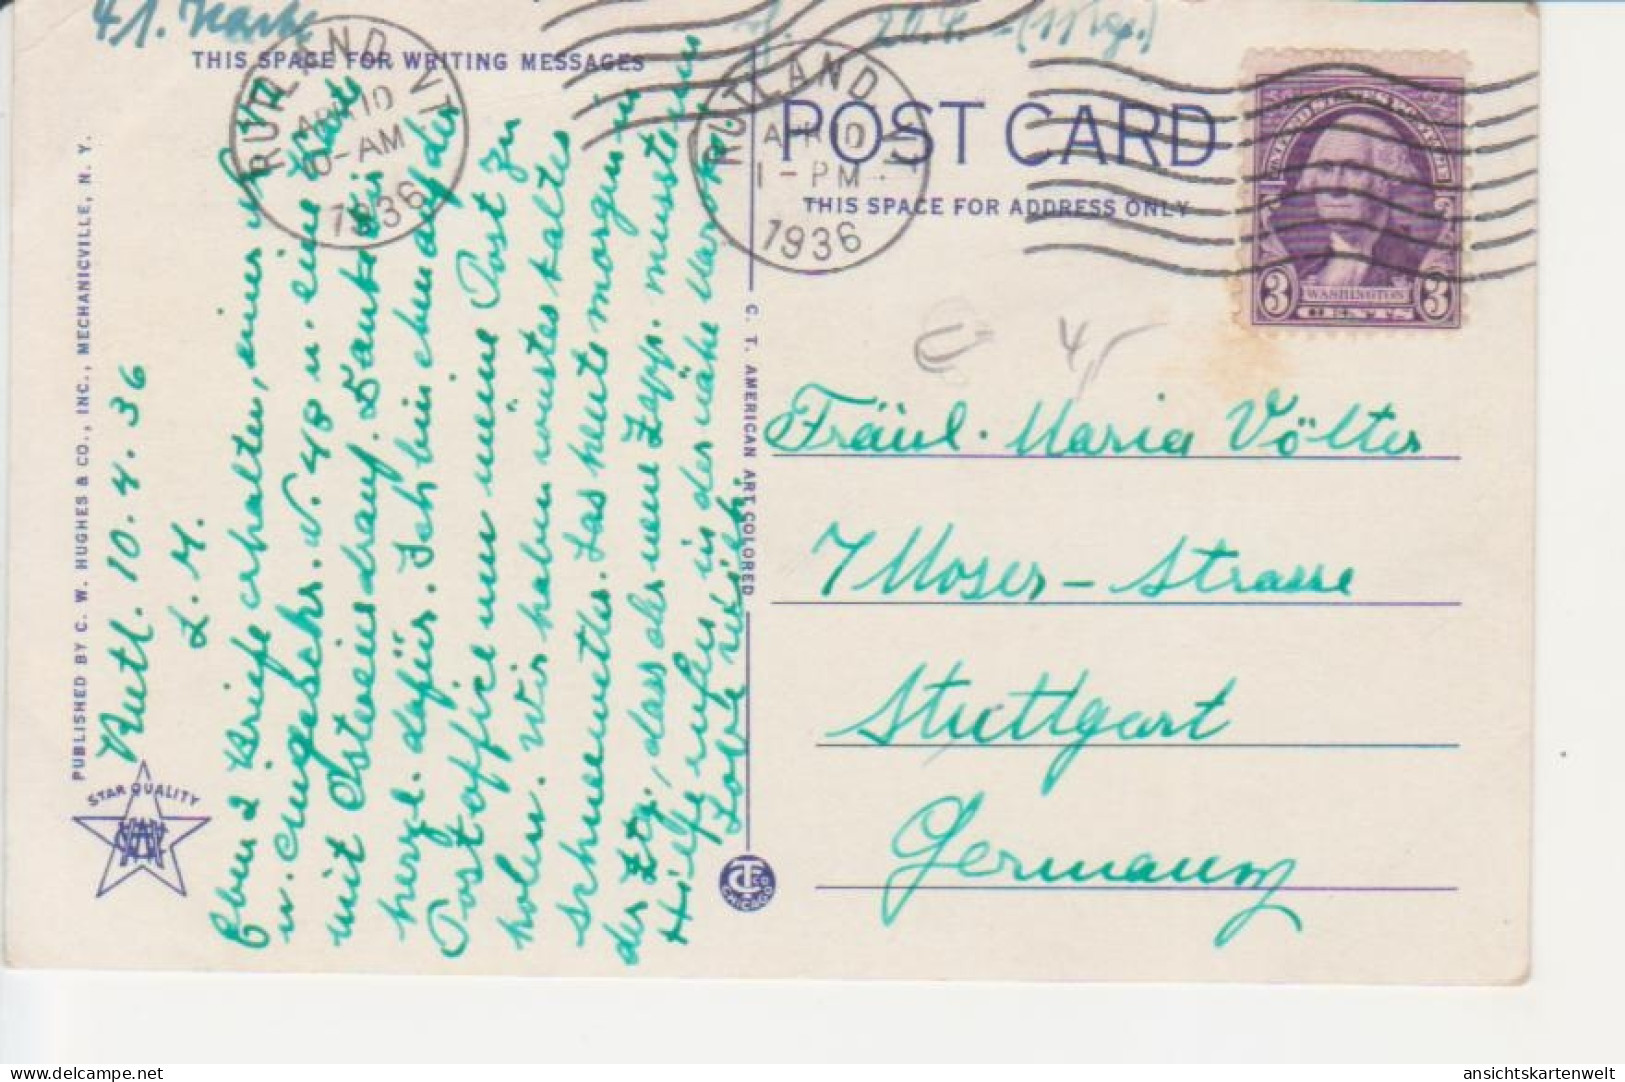 41. Karte
THIS SPACE FOR WRITING MESSAGES
RUTLAND VT
APR 10
1936
RUTLAND
APR 10
1-PM
1936
POST CARD
THIS SPACE FOR ADDRESS ONLY
UNITED STATES POSTAGE
3 WASHINGTON 3
CENTS
PUBLISHED BY C. W. HUGHES & CO., INC., MECHANICVILLE, N. Y.
STAR QUALITY
C. T. AMERICAN ART COLORED
CHICAGO
Rutl. 10.4.36
L. M.
Eben 2 Briefe erhalten, einer
u. eingeschr. N. 48 u. eine Karte
mit Ostereis drauf. Dank
herzl. dafür. Ich bin eben auf der
Postoffice um meine Post zu
holen. Wir haben wüstes kaltes
Schneewetter. Las heute morgen in
der Ztg., dass der neue Zepp. musste um
Hielfe rufen in der nähe Marokko.
4,-
Fräul. Maria Völter
7 Moser-Strasse
Stuttgart
Germany
ansichtskarten.net
ansichtskartenwelt